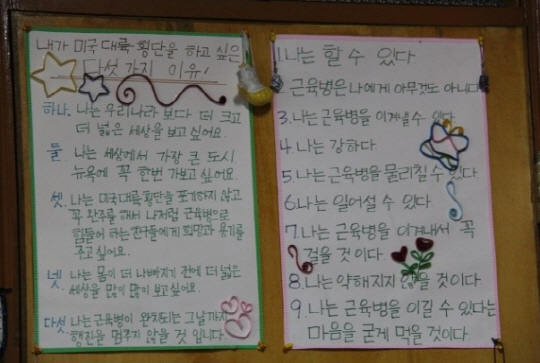 내가 미국 대륙 횡단을 하고 싶은
다섯 가지 이유!
하나. 나는 우리나라 보다 더 크고
더 넓은 세상을 보고싶어요.
둘. 나는 세상에서 가장 큰 도시
뉴욕에 꼭 한번 가보고 싶어요
셋. 나는 미국대륙횡단을 포기하지 않고
꼭 완주를 해서 나처럼 근육병으로
힘들어 하는 친구들에게 희망과 용기를
주고 싶어요.
넷. 나는 몸이 더 나빠지기 전에 더 넓은
세상을 많이 많이 보고싶어요.
다섯. 나는 근육병이 완치되는 그날까지
행진을 멈추지 않을 것 입니다
1. 나는 할 수 있다
2. 근육병은 나에게 아무것도 아니다
3. 나는 근육병을 이겨낼수 있다
4. 나는 강하다
5. 나는 근육병을 물리칠수 있다
6. 나는 일어설 수 있다
7. 나는 근육병을 이겨내서 꼭
걸을 것 이다.
8. 나는 약해지지 않을 것이다
9. 나는 근육병을 이길 수 있다는
마음을 굳게 먹을 것이다